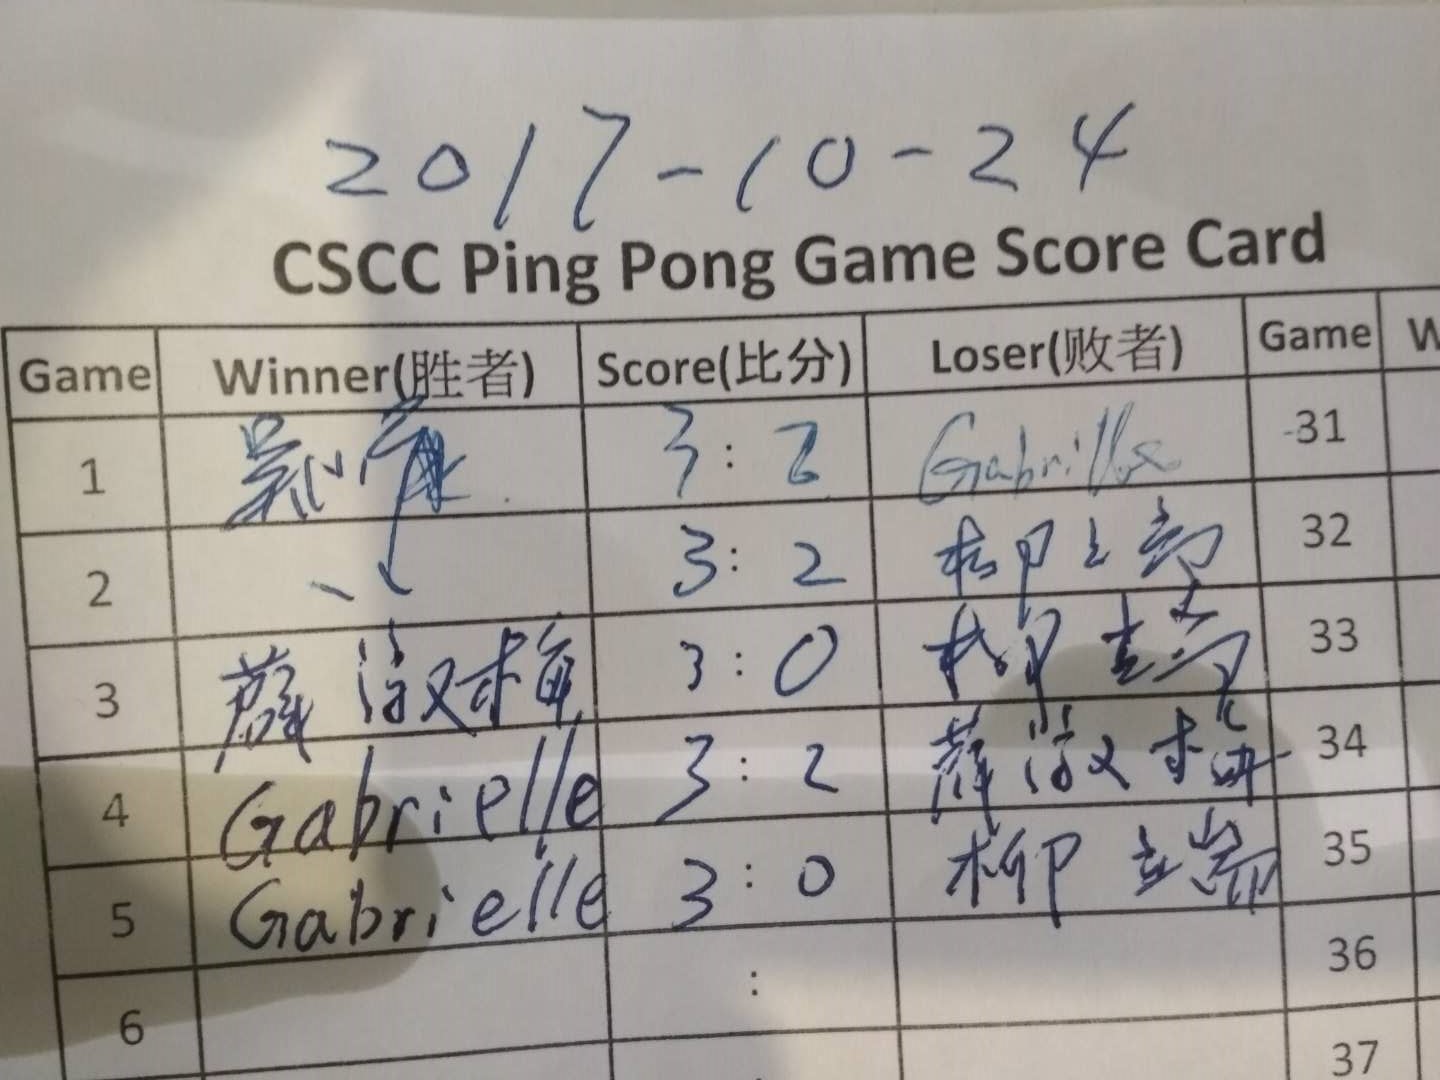 2017-10-24
CSCC Ping Pong Game Score Card
Game Winner(胜者) Score(比分) Loser(败者) Game W
1 3 : 2 Gabrielle 31
2 3 : 2 柳 32
3 3 : 0 柳 33
4 Gabrielle 3 : 2 薛 34
5 Gabrielle 3 : 0 柳 35
6 : 36
37